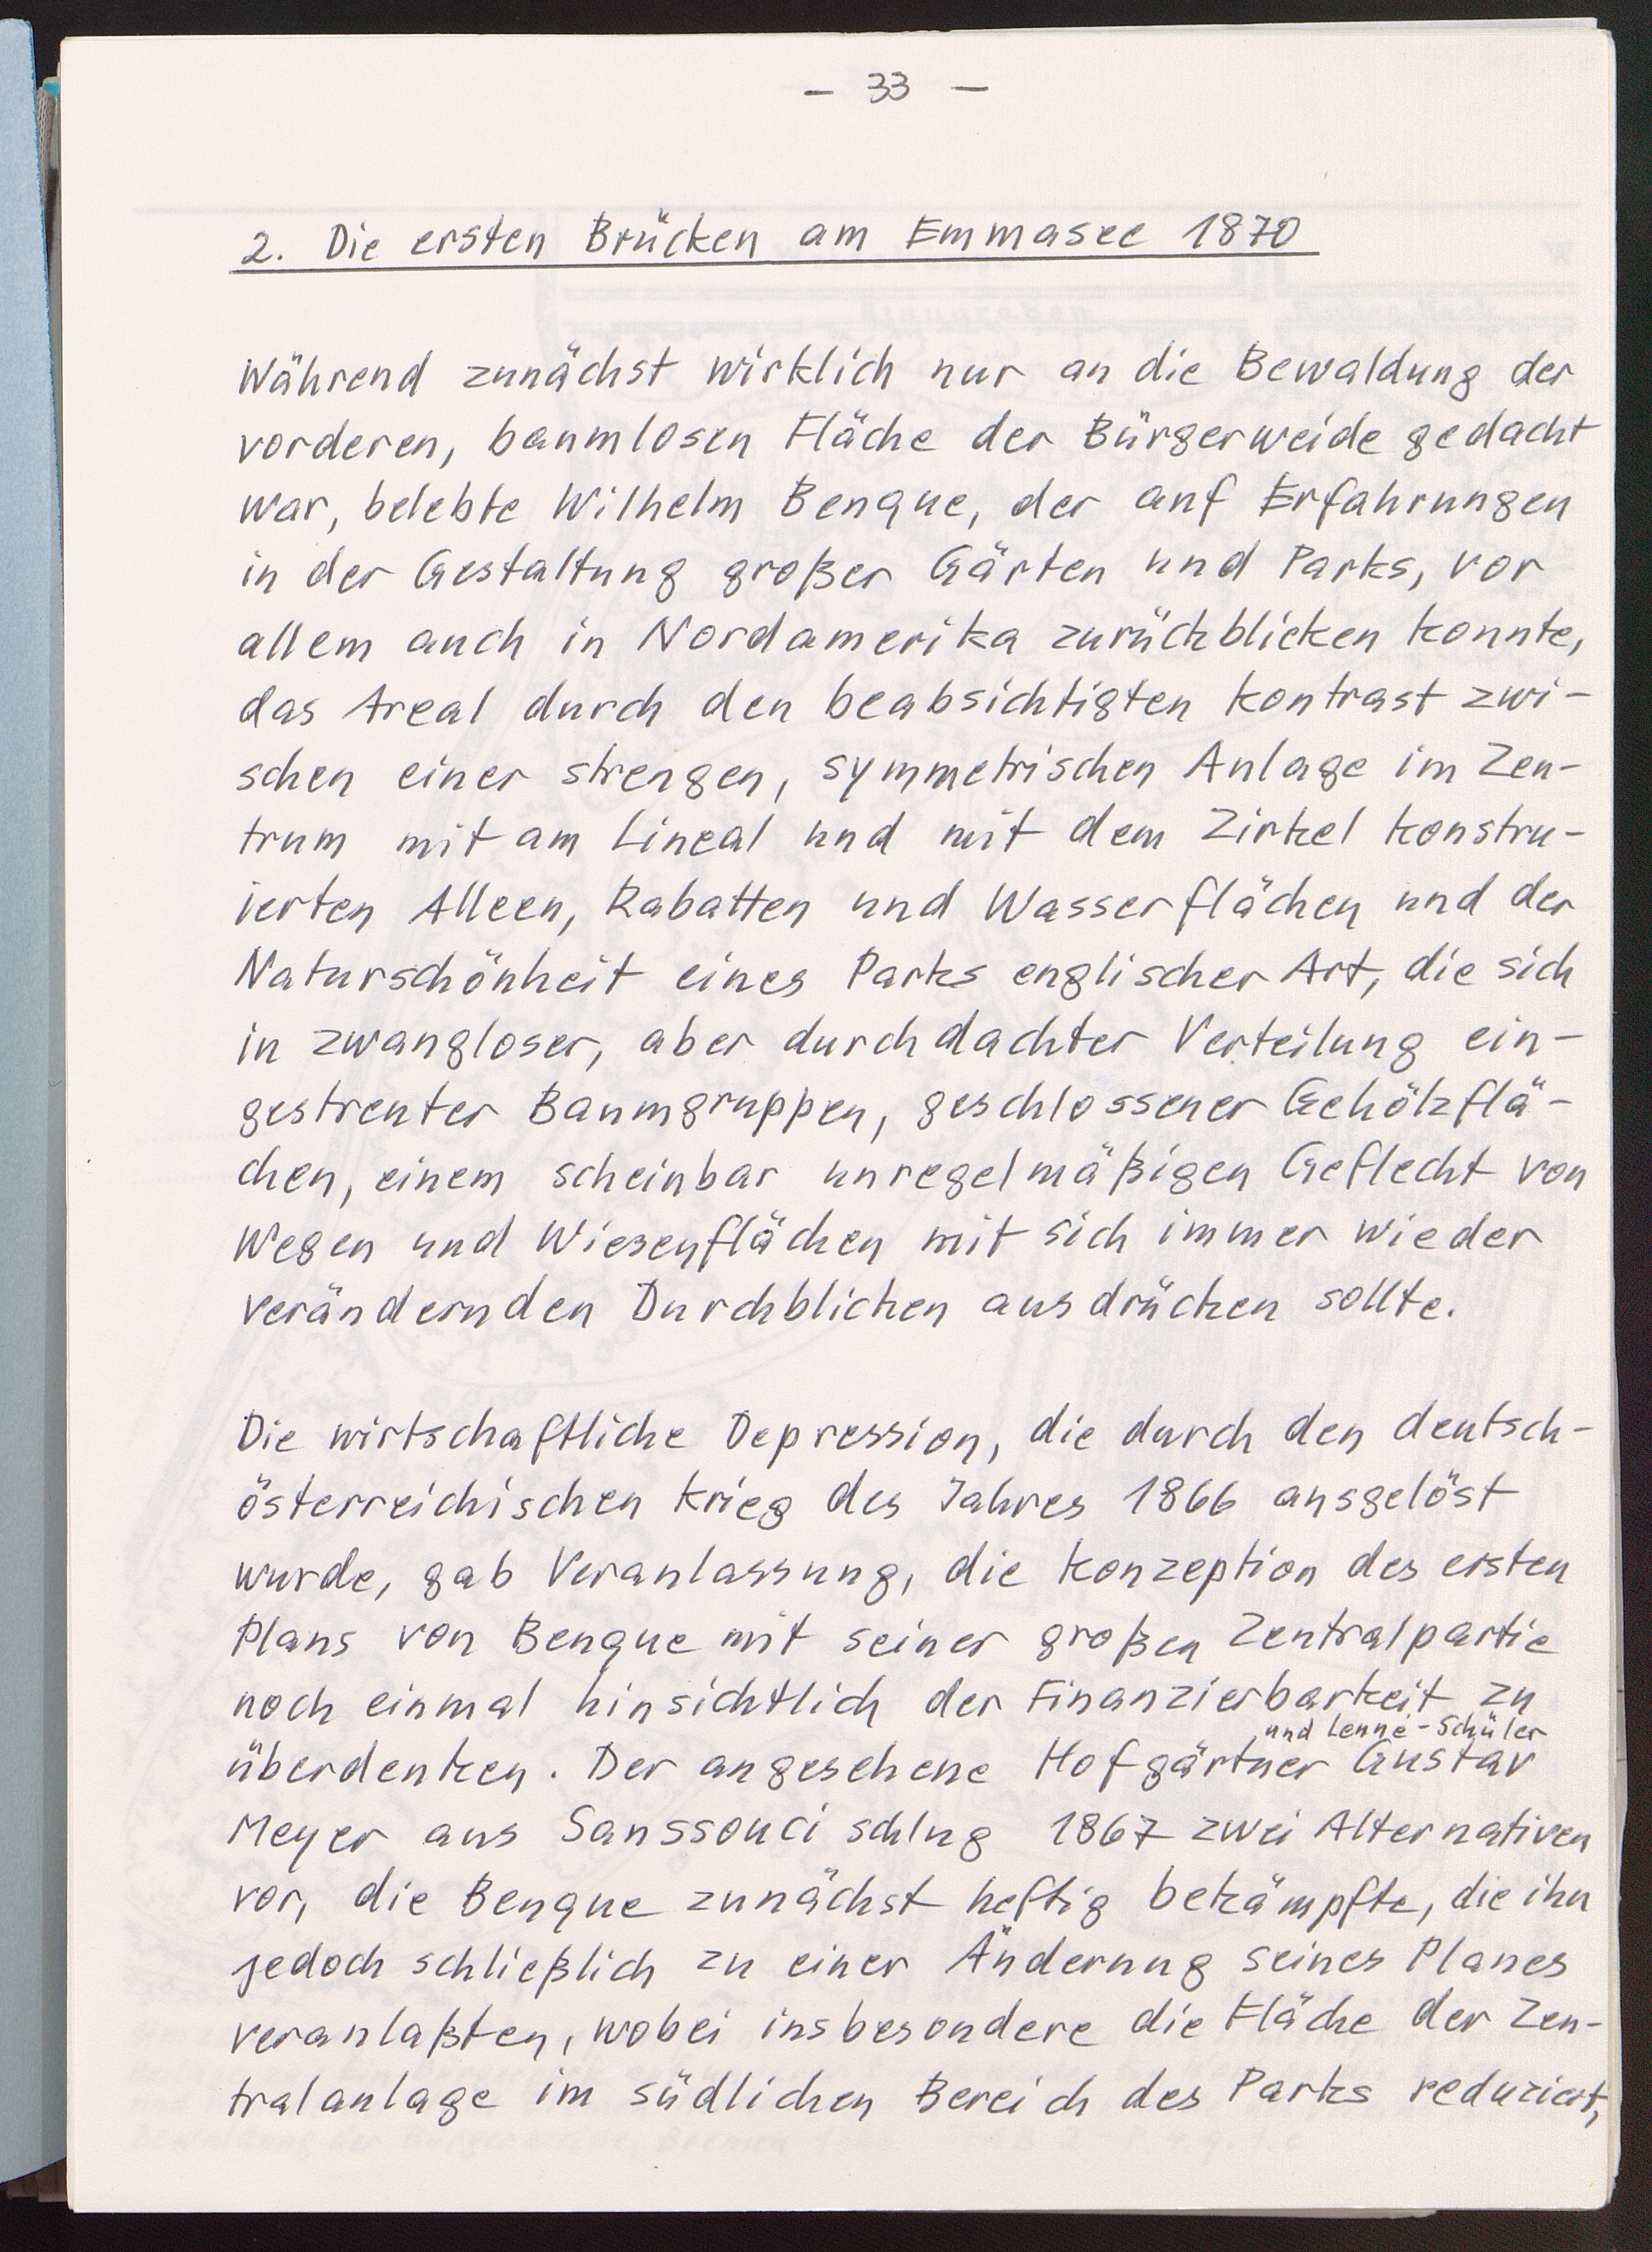 – 33 –
2. Die ersten Brücken am Emmasee 1870
Während zunächst wirklich nur an die Bewaldung der
vorderen, baumlosen Fläche der Bürgerweide gedacht
war, belebte Wilhelm Benque, der auf Erfahrungen
in der Gestaltung großer Gärten und Parks, vor
allem auch in Nordamerika zurückblicken konnte,
das Areal durch den beabsichtigten Kontrast zwi-
schen einer strengen, symmetrischen Anlage im Zen-
trum mit am Lineal und mit dem Zirkel konstru-
ierten Alleen, Rabatten und Wasserflächen und der
Naturschönheit eines Parks englischer Art, die sich
in zwangloser, aber durchdachter Verteilung ein-
gestreuter Baumgruppen, geschlossener Gehölzflä-
chen, einem scheinbar unregelmäßigen Geflecht von
Wegen und Wiesenflächen mit sich immer wieder
verändernden Durchblicken ausdrücken sollte.
Die wirtschaftliche Depression, die durch den deutsch-
österreichischen Krieg des Jahres 1866 ausgelöst
wurde, gab Veranlassung, die Konzeption des ersten
Plans von Benque mit seiner großen Zentralpartie
noch einmal hinsichtlich der Finanzierbarkeit zu
und Lenné-Schüler
überdenken. Der angesehene Hofgärtner Gustav
Meyer aus Sanssouci schlug 1867 zwei Alternativen
vor, die Benque zunächst heftig bekämpfte, die ihn
jedoch schließlich zu einer Änderung seines Planes
veranlaßten, wobei insbesondere die Fläche der Zen-
tralanlage im südlichen Bereich des Parks reduziert,